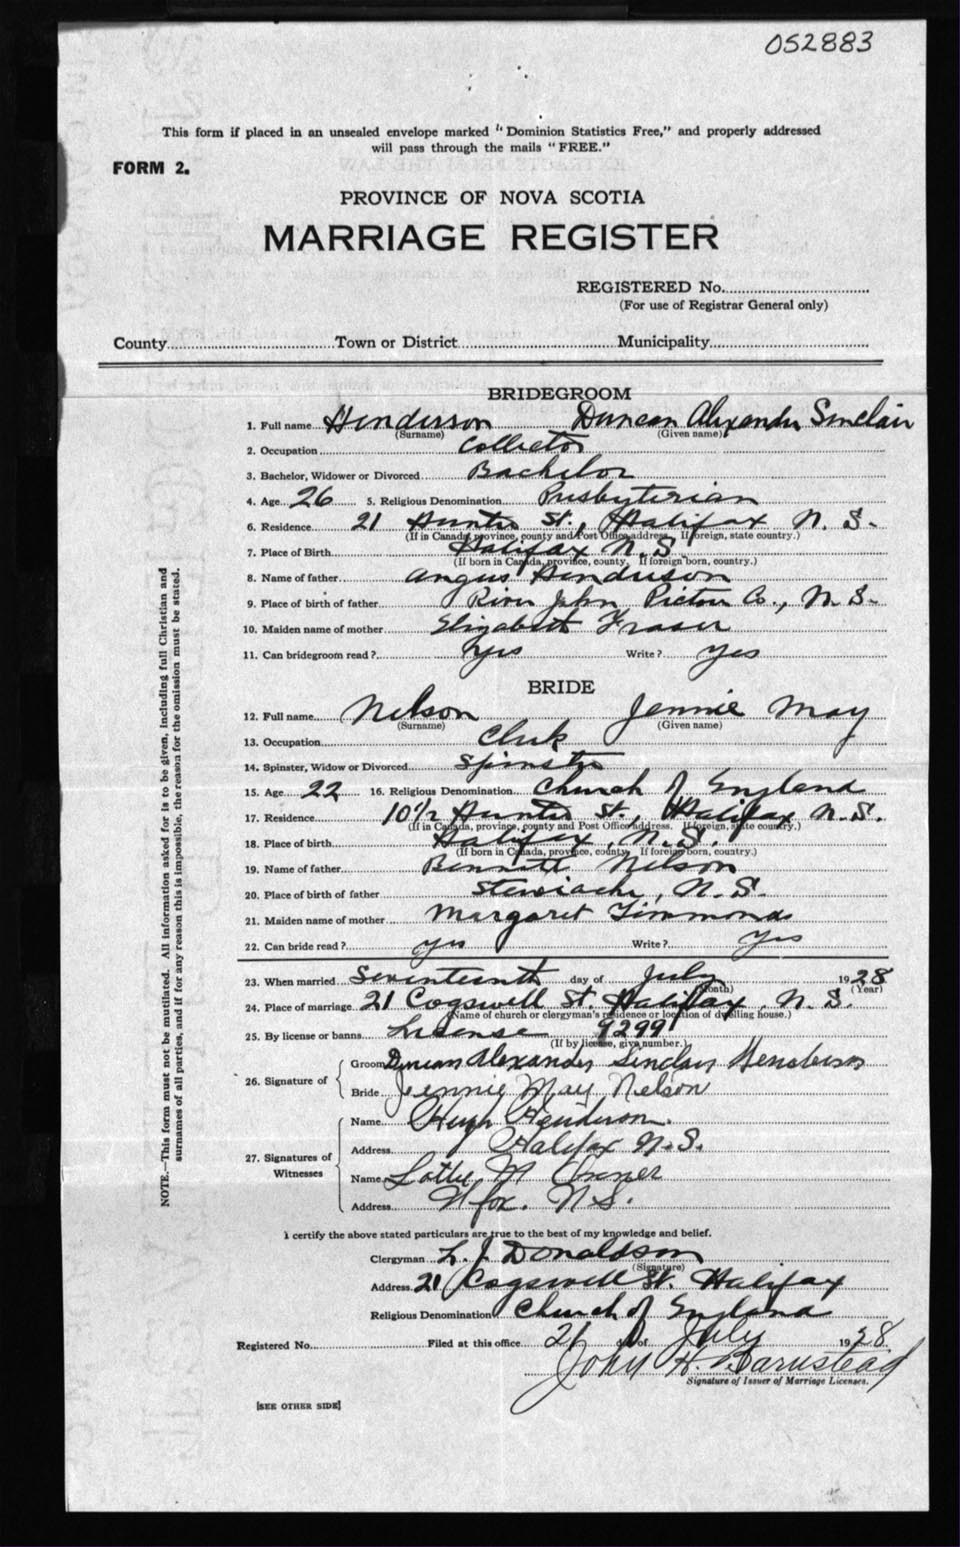 052883
This form if placed in an unsealed envelope marked "Dominion Statistics Free," and properly addressed
will pass through the mails "FREE."
FORM 2.
PROVINCE OF NOVA SCOTIA
MARRIAGE REGISTER
REGISTERED No.
(For use of Registrar General only)
County Town or District Municipality
BRIDEGROOM
1. Full name Henderson Duncan Alexander Sinclair
(Surname) (Given name)
2. Occupation Collector
3. Bachelor, Widower or Divorced Bachelor
4. Age 26 5. Religious Denomination Presbyterian
6. Residence 21 Hunter St., Halifax N. S.
(If in Canada, province, county and Post Office address. If foreign, state country.)
7. Place of Birth Halifax N. S.
(If born in Canada, province, county. If foreign born, country.)
8. Name of father Angus Henderson
9. Place of birth of father River John Pictou Co., N. S.
10. Maiden name of mother Elizabeth Fraser
11. Can bridegroom read? Yes Write? Yes
BRIDE
12. Full name Nelson Jennie May
(Surname) (Given name)
13. Occupation Clerk
14. Spinster, Widow or Divorced Spinster
15. Age 22 16. Religious Denomination Church of England
17. Residence 10½ Hunter St., Halifax N. S.
(If in Canada, province, county and Post Office address. If foreign, state country.)
18. Place of birth Halifax, N. S.
(If born in Canada, province, county. If foreign born, country.)
19. Name of father Bennett Nelson
20. Place of birth of father Stewiacke, N. S.
21. Maiden name of mother Margaret Timmonds
22. Can bride read? Yes Write? Yes
23. When married Seventeenth day of July 1928
(Month) (Year)
24. Place of marriage 21 Cogswell St. Halifax, N. S.
(Name of church or clergyman's residence or location of dwelling house.)
25. By license or banns License 9299
(If by license, give number.)
26. Signature of Groom Duncan Alexander Sinclair Henderson
Bride Jennie May Nelson
27. Signatures of Witnesses Name Hugh Henderson.
Address Halifax N. S.
Name Lottie
Address Hfx. N. S.
I certify the above stated particulars are true to the best of my knowledge and belief.
Clergyman L. J. Donaldson
(Signature)
Address 21 Cogswell St. Halifax
Religious Denomination Church of England
Registered No. Filed at this office 21 day of July 1928
John H. Barnstead
Signature of Issuer of Marriage Licenses.
[SEE OTHER SIDE]
NOTE.—This form must not be mutilated. All information asked for is to be given, including full Christian and
surnames of all parties, and if for any reason this is impossible, the reason for the omission must be stated.